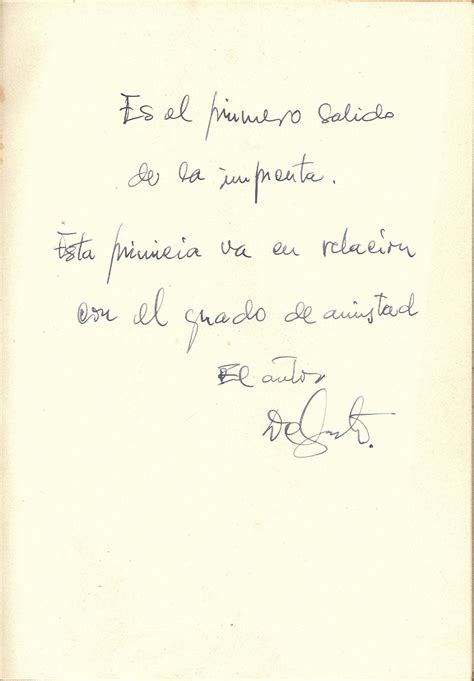 Es el primero salido
de la imprenta.
Esta primicia va en relación
con el grado de amistad
El autor